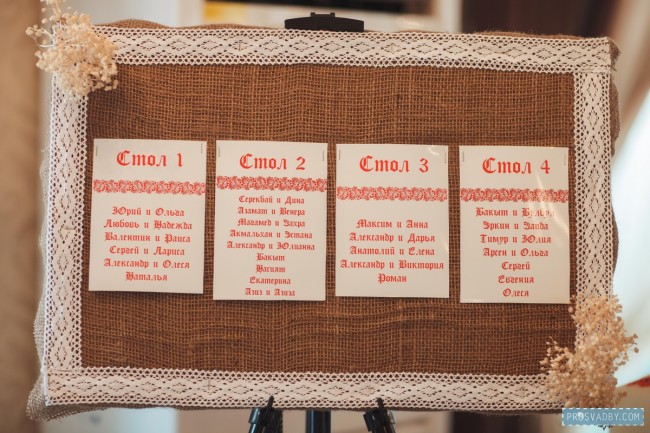 Стол 1
Юрий и Ольга
Любовь и Надежда
Валентин и Раиса
Сергей и Лариса
Александр и Олеся
Наталья
Стол 2
Серекбай и Дина
Азамат и Венера
Магамед и Захра
Акмальхан и Эстана
Александр и Юлианна
Бакыт
Насият
Екатерина
Азиз и Азиза
Стол 3
Максим и Анна
Александр и Дарья
Анатолий и Елена
Александр и Виктория
Роман
Стол 4
Бакыт и
Эркин и Заида
Тимур и Юлия
Арсен и Ольга
Сергей
Евгения
Олеся
PROSVADBY.COM